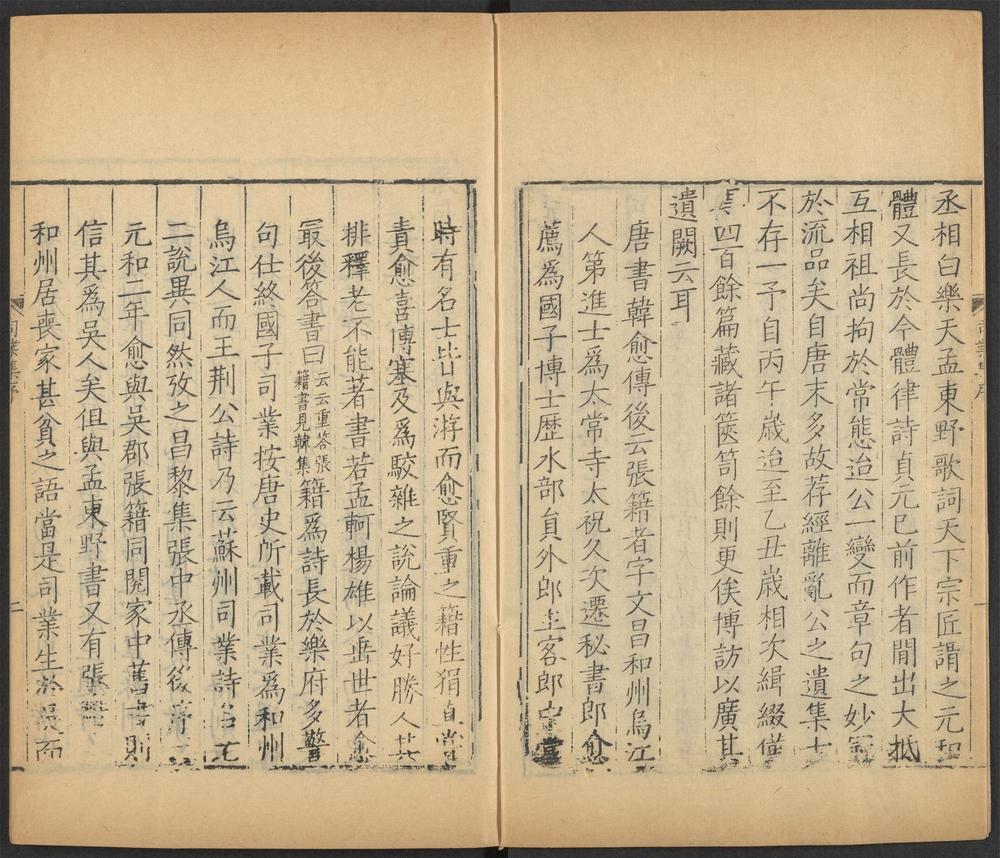 丞相白樂天孟東野歌詞天下宗匠謂之元和
體又長於今體律詩貞元已前作者間出大抵
互相祖尚拘於常態迨公一變而章句之妙冠
於流品矣自唐末多故荐經離亂公之遺集十
不存一予自丙午歳迨至乙丑歳相次緝綴僅
四百餘篇藏諸篋笥餘則更俟博訪以廣其
遺闕云耳
唐書韓愈傳後云張籍者字文昌和州烏江
人第進士爲太常寺太祝久次遷秘書郎愈
薦爲國子博士歴水部員外郎主客郎中當
時有名士皆與游而愈賢重之籍性狷直嘗
責愈喜博塞及爲駁雜之說論議好勝人其
排釋老不能著書若孟軻楊雄以垂世者愈
最後答書曰云云重答張籍書見韓集籍爲詩長於樂府多警
句仕終國子司業按唐史所載司業爲和州
烏江人而王荆公詩乃云蘇州司業詩名老
二説異同然攷之昌黎集張中丞傳後序云
元和二年愈與吳郡張籍同閱家中舊書則
信其爲吳人矣但與孟東野書又有張籍
和州居喪家甚貧之語當是司業生於吳而
司業集序
二